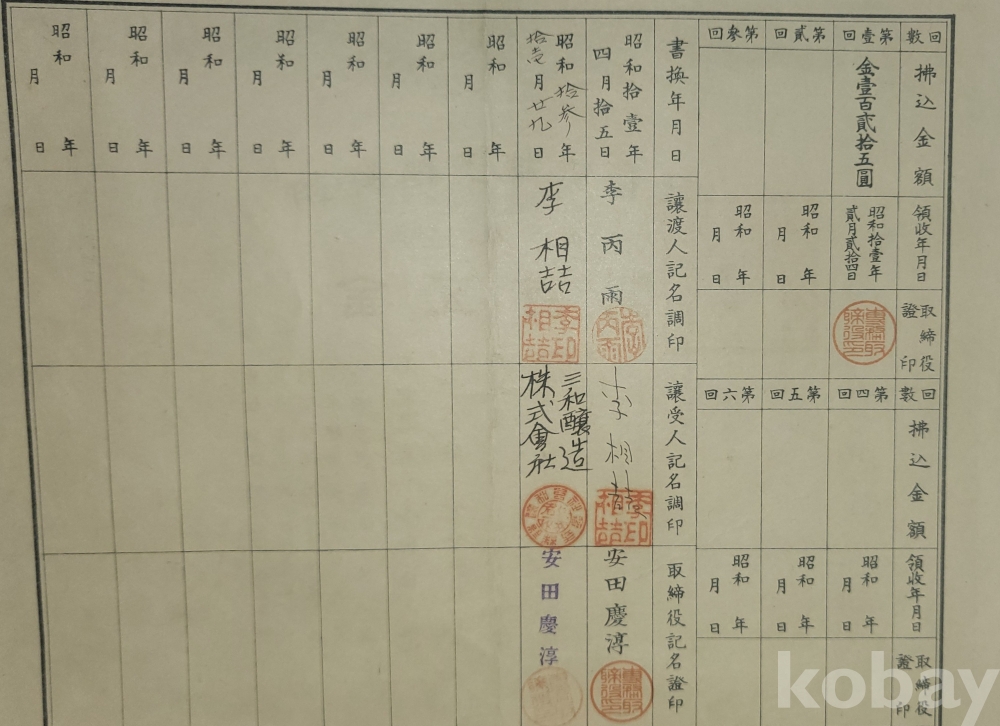 回數
第壹回
第貳回
第參回
拂込金額
金壹百貳拾五圓
領收年月日
昭和拾壹年
貳月貳拾四日
昭和 年
月 日
昭和 年
月 日
取締役
證印
回數
第四回
第五回
第六回
拂込金額
領收年月日
昭和 年
月 日
昭和 年
月 日
昭和 年
月 日
取締役
證印
書換年月日
讓渡人記名調印
讓受人記名調印
取締役記名證印
昭和拾壹年
四月拾五日
李丙雨
李相喆
李印
相喆
安田慶淳
昭和拾參年
拾壱月廿九日
李相喆
李印
相喆
三和釀造
株式會社
安田慶淳
昭和 年
月 日
昭和 年
月 日
昭和 年
月 日
昭和 年
月 日
昭和 年
月 日
昭和 年
月 日
昭和 年
月 日
kobay